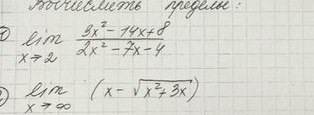 Вычислить пределы:
1) lim x→2 (3x² − 14x + 8)/(2x² − 7x − 4)
lim x→∞ (x − √(x² + 3x))